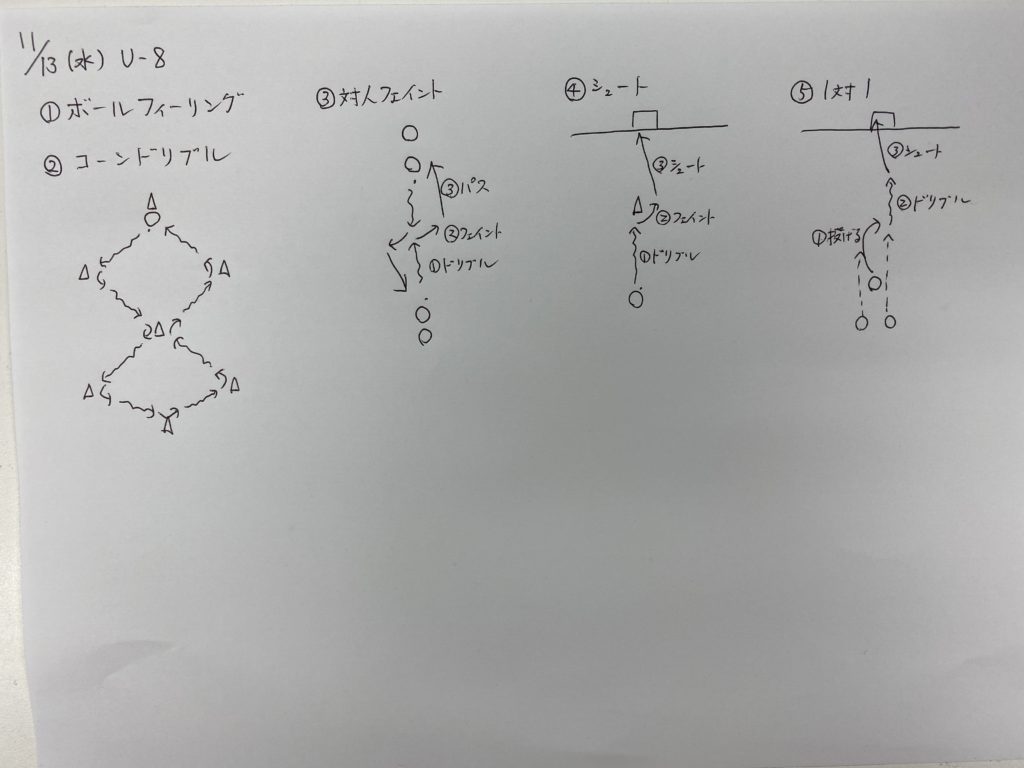 11/13 (水) U-8
①ボールフィーリング
②コーンドリブル
③対人フェイント
③パス
②フェイント
①ドリブル
④シュート
③シュート
②フェイント
①ドリブル
⑤1対1
③シュート
②ドリブル
①投げる